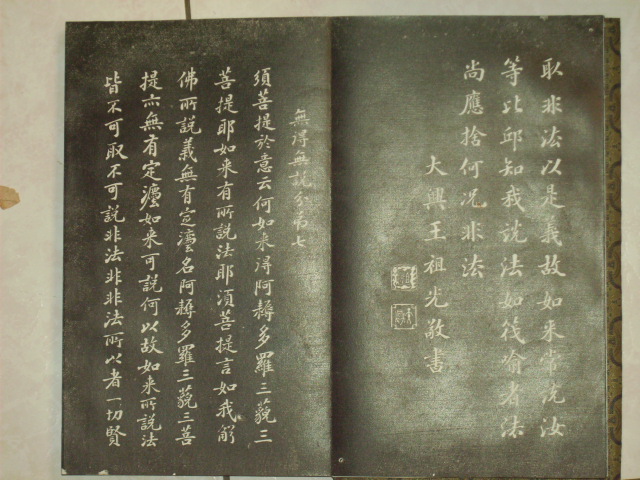 取非法以是義故如来常説汝
等比邱知我説法如筏喻者法
尚應捨何况非法
大興王祖光敬書
無得無説分弟七
須菩提於意云何如来得阿耨多羅三藐三
菩提耶如来有所説法耶須菩提言如我解
佛所説義無有定灋名阿耨多羅三藐三菩
提亦無有定灋如来可説何以故如来所説法
皆不可取不可説非法非非法所以者一切賢